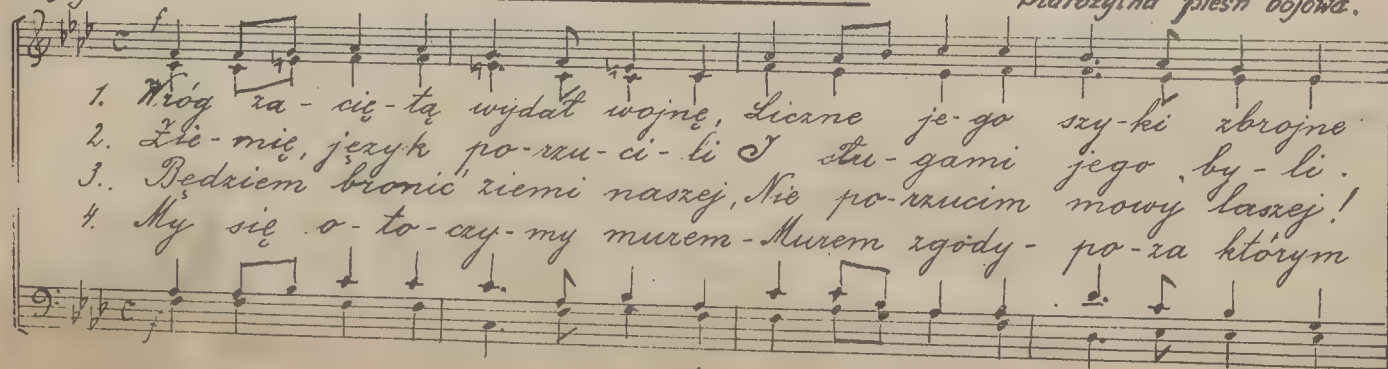 Starożytna pieśń bojowa.
f
1. Wróg za-cię-tą wydał wojnę, Liczne je-go szy-ki zbrojne
2. Zie-mię, język po-rzu-ci-li I słu-gami jego by-li.
3. Będziem bronić ziemi naszej, Nie po-rzucim mowy laszej!
4. My się o-to-czy-my murem-Murem zgody-po-za którym
f